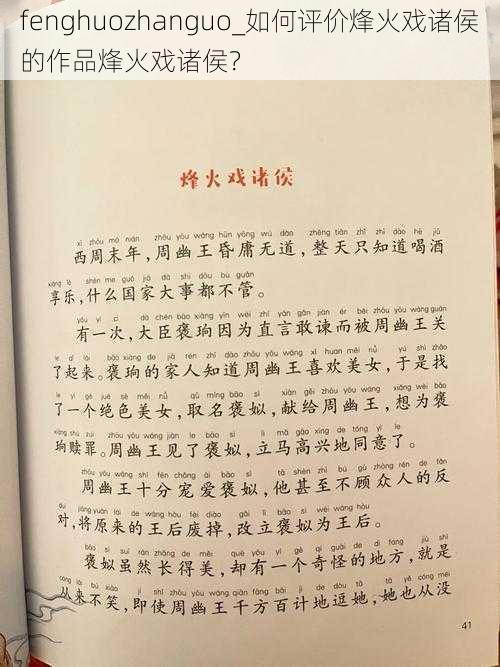 fenghuozhanguo_如何评价烽火戏诸侯
的作品烽火戏诸侯?
烽火戏诸侯
xī zhōu mò nián zhōu yōu wáng hūn yōng wú dào zhěng tiān zhǐ zhī dào hē jiǔ
西周末年,周幽王昏庸无道,整天只知道喝酒
xiǎng lè shén me guó jiā dà shì dōu bù guǎn
享乐,什么国家大事都不管。
yǒu yí cì dà chén bāo xiǎng yīn wèi zhí yán gǎn jiàn ér bèi zhōu yōu wáng guān
有一次,大臣褒珦因为直言敢谏而被周幽王关
le qǐ lái bāo xiǎng de jiā rén zhī dào zhōu yōu wáng xǐ huan měi nǚ yú shì zhǎo
了起来。褒珦的家人知道周幽王喜欢美女,于是找
le yí gè jué sè měi nǚ qǔ míng bāo sì xiàn gěi zhōu yōu wáng xiǎng wèi bāo
了一个绝色美女,取名褒姒,献给周幽王,想为褒
xiǎng shú zuì zhōu yōu wáng jiàn le bāo sì lì mǎ gāo xìng de tóng yì le
珦赎罪。周幽王见了褒姒,立马高兴地同意了。
zhōu yōu wáng shí fēn chǒng ài bāo sì tā shèn zhì bú gù zhòng rén de fǎn
周幽王十分宠爱褒姒,他甚至不顾众人的反
duì jiāng yuán lái de wáng hòu fèi diào gǎi lì bāo sì wéi wáng hòu
对,将原来的王后废掉,改立褒姒为王后。
bāo sì suī rán zhǎng de měi què yǒu yí gè qí guài de dì fang jiù shì
褒姒虽然长得美,却有一个奇怪的地方,就是
cóng lái bú xiào jí shǐ zhōu yōu wáng qiān fāng bǎi jì de dòu tā tā yě cóng méi
从来不笑,即使周幽王千方百计地逗她,她也从没
41